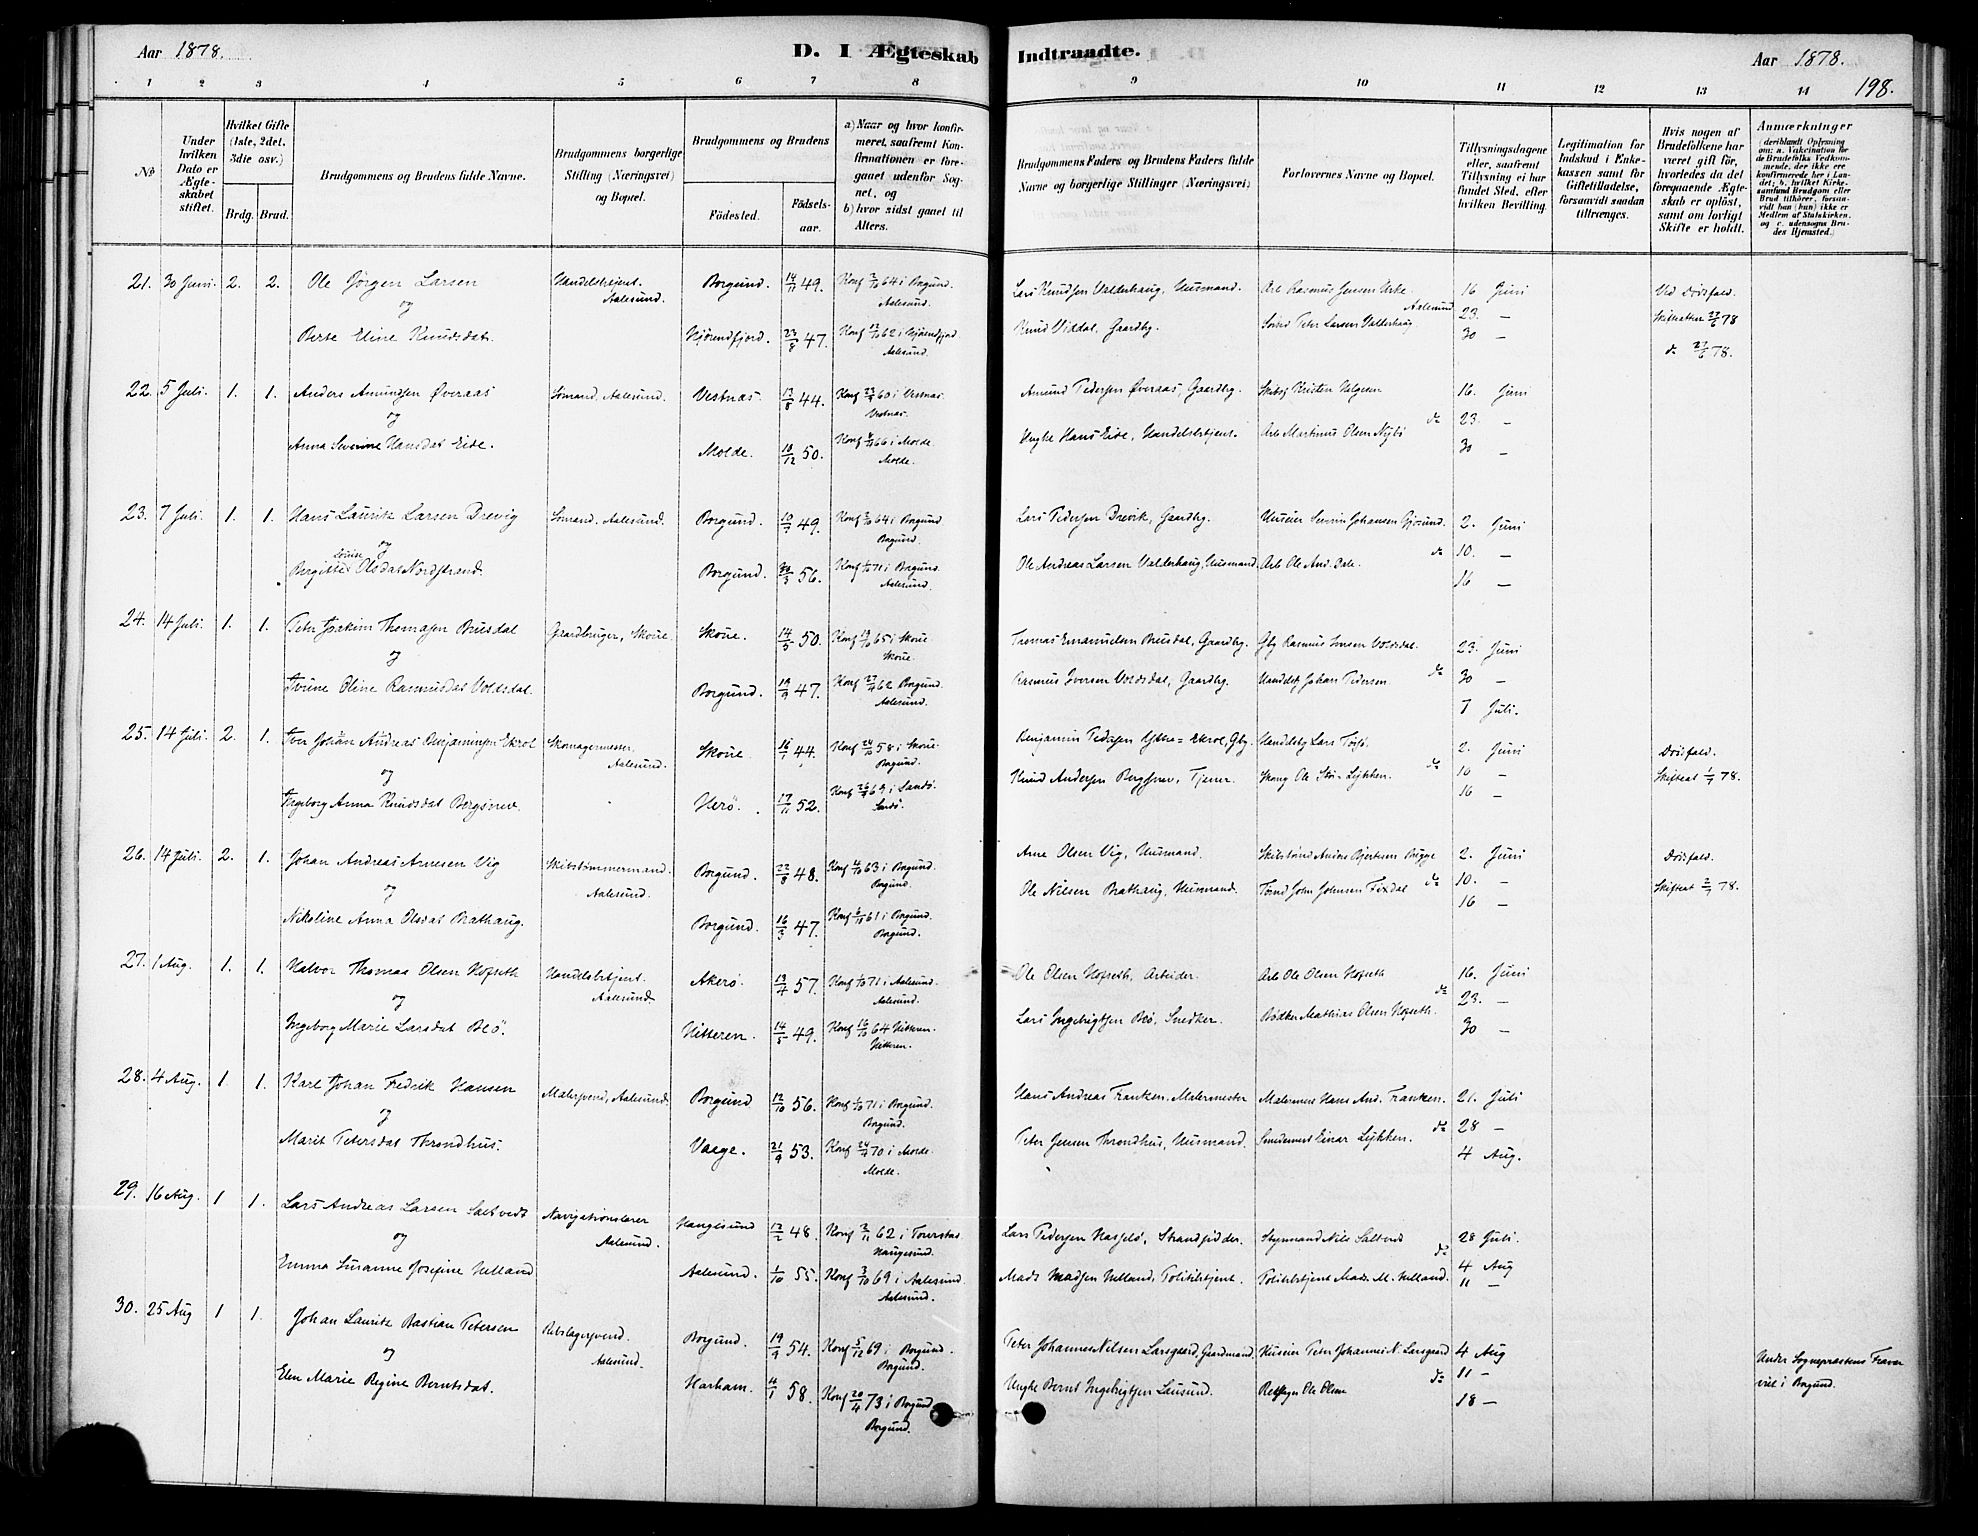 Aar 1878.
D. I Ægteskab Indtraadte.
Aar 1878.
198.
1 2 3 4 5 6 7 8 9 10 11 12 13 14
No
Under hvilken Dato er Ægteskabet stiftet.
Hvilket Gifte (1ste, 2det, 3die osv.)
Brdg. Brud.
Brudgommens og Brudens fulde Navne.
Brudgommens borgerlige Stilling (Næringsvei) og Bopæl.
Brudgommens og Brudens
Födested.
Födselsaar.
a) Naar og hvor konfirmeret, saafremt Konfirmationen er foregaaet udenfor Sognet, og
b) hvor sidst gaaet til Alters.
Brudgommens Faders og Brudens Faders fulde Navne og borgerlige Stillinger (Næringsvei)
Forlovernes Navne og Bopæl.
Tillysningsdagene eller, saafremt Tillysning ei har fundet Sted, efter hvilken Bevilling.
Legitimation for Indskud i Enkekassen samt for Giftetilladelse, forsaavidt saadan tiltrænges.
Hvis nogen af Brudefolkene har været gift för, hvorledes da det foregaaende Ægteskab er oplöst, samt om lovligt Skifte er holdt.
Anmærkninger (deriblandt Oplysning om: a. Vakcination for de Brudefolks Vedkommende, der ikke ere konfirmerede her i Landet; b. hvilket Kirkesamfund Brudgom eller Brud tilhörer, forsaavidt han (hun) ikke er Medlem af Statskirken, og c. udensogns Brudes Hjemsted.)
21. 30 Juni. 2. 2. Ole Jørgen Larsen Handelsbetjent. Borgund. 14/11 49. Konf 2/10 64 i Borgund. Lars Knudsen Valderhaug, Husmand. Arb Rasmus Jensen Urke 16 Juni Ved Dødsfald.
og Aalesund. Aalesund. Aalesund 23. — Skifteatten 27/6 78
Berte Eline Knudsdat. Hjørendfjord. 23/8 47. Konf 12/10 62 i Hjørendfjord Knud Viddal, Gaardbg. Peter Larsen Valderhaug 30 — do 27/6 78.
Aalesund.
22. 5 Juli. 1. 1. Anders Amundsen Øveraas Sømand, Aalesund. Vestnæs. 13/8 44. Konf 23/9 60 i Vestnæs Amund Pedersen Øveraas, Gaardbg. Kristen Helgesen 16. Juni
og Vestnæs. do 23. —
Anna Severine Hansdat Eide. Molde. 10/12 50. Konf 66 i Molde. Ungke Hans Eide, Handelsbetjent. Arb Martinus Olsen Nybø 30 —
Molde.
23. 7 Juli. 1. 1. Hans Lauritz Larsen Brevig Sømand, Aalesund. Borgund. 49. Konf 64 i Borgund Lars Pedersen Brevik, Gaardbg. Huseier Severin Johansen Gjøsund. 2. Juni
og Borgund. do 10. —
Bergitte Olsdat Nordstrand. Borgund. 56. Konf 1/10 71 i Borgund. Ole Andreas Larsen Valderhaug, Husmand. Arb Ole And. Dale. 16 —
Aalesund.
24. 14 Juli. 1. 1. Peter Joakim Thomasen Brusdal Gaardbruger, Skoue. Skoue. 14/5 50. Konf 65 i Skoue Thomas Emanuelsen Brusdal, Gaardbg. Gbg Rasmus Iversen Volsdal. 23. Juni
og Skoue. do 30 —
Oline Rasmusdat Volsdal. Borgund. 19/9 47. Konf 62 Borgund. Rasmus Iversen Volsdal, Gaardbg. Handelsbtj Johan Pedersen 7 Juli.
Aalesund.
25. 14 Juli. 2. 1. Iver Johan Andreas Benjaminsen Ekrol Skomagermester Skoue 44. Konf 58 i Skoue Benjamin Pedersen Ytre-Ekrol, Gbg. Handelsbg Lars 2. Juni Dødsfald.
og Aalesund. Borgund. do 10 — Skifteat 1/7 78.
Ingeborg Anna Knudsdat Bergsnev. Herø. 17/11 52. Konf 69 i Sandø. Knud Andersen Bergsnev, Tjener. Skomg Ole Lykken. 16 —
Sandø.
26. 14 Juli. 2. 1. Johan Andreas Arnesen Vig Skibstømmermand. Borgund. 48. Konf 63 i Borgund. Arne Olsen Vig, Husmand. 2. Juni Dødsfald.
og Aalesund. Borgund. do 10. — Skifteat 78.
Nikoline Anna Olsdat Brathaug. Borgund. 16/3 47. Konf 61 i Borgund. Ole Nilsen Brathaug, Husmand. John Johnsen Fixdal 16 —
Borgund.
27. 1 Aug. 1. 1. Halvor Thomas Olsen Hofseth Handelsbetjent. Akerø. 13/7 57. Konf 1/10 71 i Aalesund. Ole Olsen Hofseth, Arbeider. Arb Ole Olsen Hofseth 16. Juni
og Aalesund Aalesund. do 23. —
Ingeborg Marie Larsdat Beø. Hitteren. 14/5 49. Konf 16/10 64 Hitteren. Lars Ingebrigtsen Beø, Snedker. Bødker Mathias Olsen Hofseth. 30 —
Hitteren.
28. 4 Aug. 1. 1. Karl Johan Fredrik Hansen Malersvend, Aalesund. Borgund 12/10 56. Konf 1/10 71 i Borgund. Hans Andreas Franken, Malermester Malermest Hans And. Franken. 21. Juli
og Borgund. do 28 —
Marit Petersdat Throndhus. Vaage. 21/9 53. Konf 70 i Molde. Peter Jensen Throndhus, Husmand. Smedemest Einar Lykken. 4 Aug.
Molde.
29. 16 Aug. 1 1. Lars Andreas Larsen Saltvedt Navigationslærer Haugesund 12/2 48. Konf 2/11 62 i Torvestad Lars Pedersen Hasselø, Strandsidder. Styrmand Nils Saltvedt 28 Juli.
og Aalesund. Haugesund. do 4 Aug
Emma Susanne Josefine Helland Aalesund. 1/10 55. Konf 3/10 69 i Aalesund. Mads Madsen Helland, Politibetjent. Politibetjent Mads M. Helland. 11 —
Aalesund.
30. 25 Aug 1 1. Johan Lauritz Bastian Petersen Rebslagersvend. Borgund. 19/9 54. Konf 5/12 69 i Borgund. Peter Johannes Nilsen Larsgaard, Gaardmand. Huseier Peter Johannes N. Larsgaard 4 Aug Under Sognepræstens Fravær
og Aalesund. Borgund. do 11 — viet i Borgund.
Elen Marie Regine Berntsdat. Harham. 58. Konf 20/4 73 i Borgund Ungke Bernt Ingebrigtsen Lausund. Ole Olsen 18 —
Borgund.